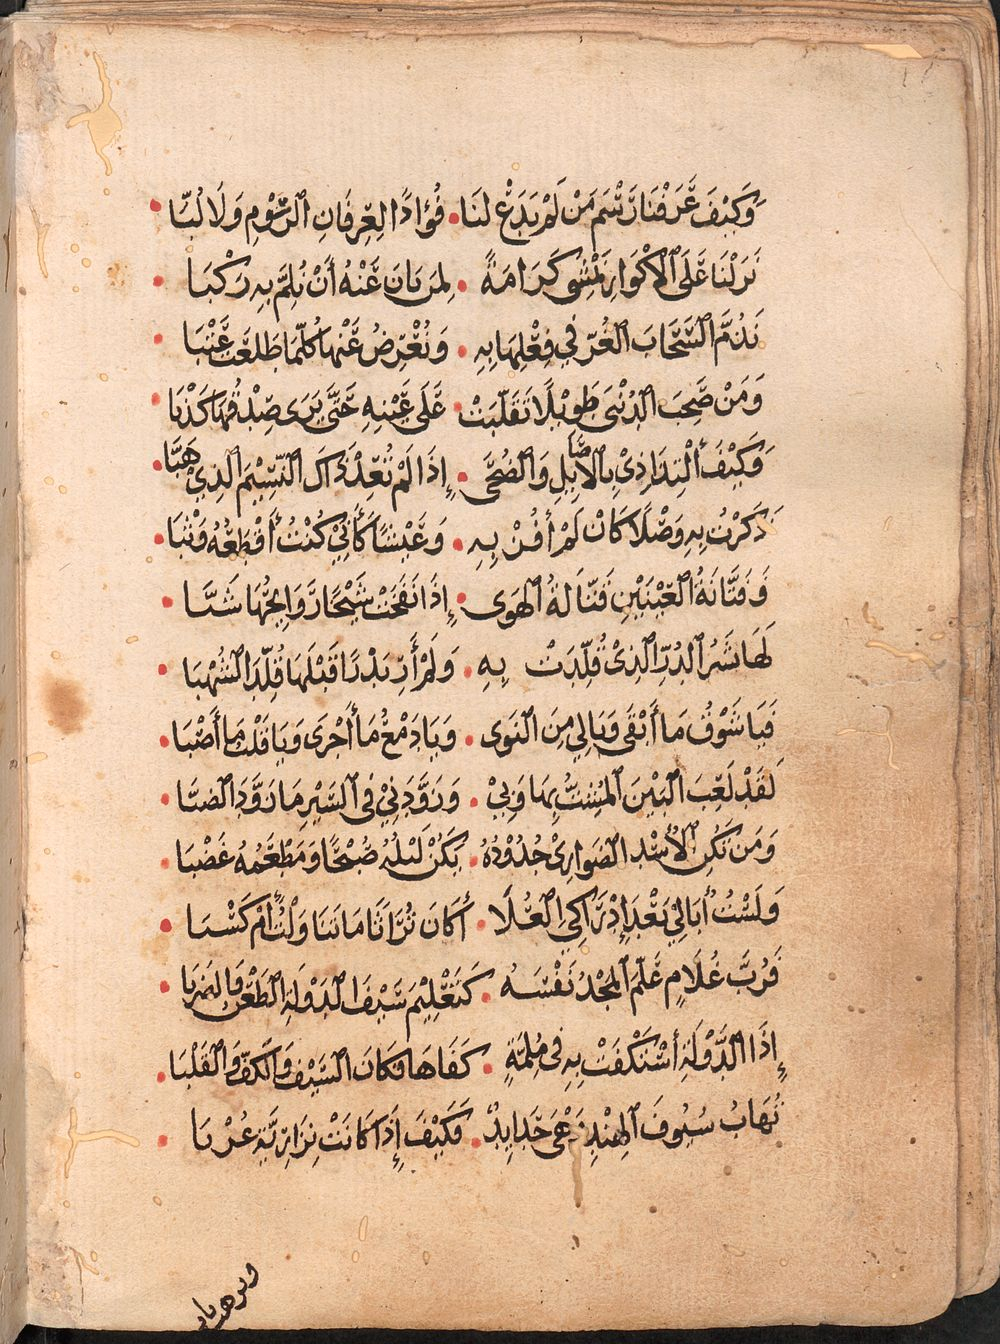 وَكَيْفَ عَرَفْنَا رَسْمَ مَنْ لَمْ يَدَعْ لَنَا • فُؤَادًا لِعِرْفَانِ الرُّسُومِ وَلَا لُبَّا •
نَزَلْنَا عَلَى الْأَكْوَارِ نَمْشِي كَرَامَةً • لِمَنْ بَانَ عَنْهُ أَنْ نُلِمَّ بِهِ رَكْبَا •
نَذُمُّ السَّحَابَ الْغُرَّ فِي فِعْلِهَا بِهِ • وَنُعْرِضُ عَنْهَا كُلَّمَا طَلَعَتْ عَتْبَا •
وَمَنْ صَحِبَ الدُّنْيَى طَوِيْلًا تَقَلَّبَتْ • عَلَى عَيْنِهِ حَتَّى يَرَى صِدْقَهَا كَذْبَا •
وَكَيْفَ الْتِذَاذِي بِالْأَصَائِلِ وَالضُّحَى • إِذَا لَمْ تُعِدْ ذَاكَ النَّسِيْمَ الَّذِي هَبَّا •
ذَكَرْتُ بِهِ وَصْلًا كَأَنْ لَمْ أَفُزْ بِهِ • وَعَيْشًا كَأَنِّي كُنْتُ أَقْطَعُهُ وَثْبَا •
وَفَتَّانَةُ الْعَيْنَيْنِ قَتَّالَةُ الْهَوَى • إِذَا نَفَحَتْ شَيْخًا رَوَائِحُهَا شَبَّا •
لَهَا بَشَرُ الدُّرِّ الَّذِي قُلِّدَتْ بِهِ • وَلَمْ أَرَ بَدْرًا قَبْلَهَا قُلِّدَ الشُّهْبَا •
فَيَا شَوْقُ مَا أَبْقَى وَيَالِي مِنَ النَّوَى • وَيَا دَمْعُ مَا أَجْرَى وَيَا قَلْبُ مَا أَصْبَا •
لَقَدْ لَعِبَ الْبَيْنُ الْمُشِتُّ بِهَا وَبِيْ • وَزَوَّدَنِيْ فِي السَّيْرِ مَا زَوَّدَ الضَّبَّا •
وَمَنْ تَكُنِ الْأُسْدُ الضَّوَارِيْ جُدُوْدُهُ • يَكُنْ لَيْلُهُ صُبْحًا وَمَطْعَمُهُ غَصْبَا •
وَلَسْتُ أُبَالِي بَعْدَ إِدْرَاكِيَ الْعُلَا • أَكَانَ تُرَاثًا مَا تَنَاوَلْتُ أَمْ كَسْبَا •
فَرُبَّ غُلَامٍ عَلَّمَ الْمَجْدُ نَفْسَهُ • كَتَعْلِيْمِ سَيْفِ الدَّوْلَةِ الطَّعْنَ وَالضَّرْبَا •
إِذَا الدَّوْلَةُ اسْتَكْفَتْ بِهِ فِي مُلِمَّةٍ • كَفَاهَا فَكَانَ السَّيْفَ وَالْكَفَّ وَالْقَلْبَا •
تُهَابُ سُيُوفُ الْهِنْدِ وَهْيَ حَدَايِدٌ • فَكَيْفَ إِذَا كَانَتْ نِزَارِيَّةً عُرْبَا •
ويرهب ناب